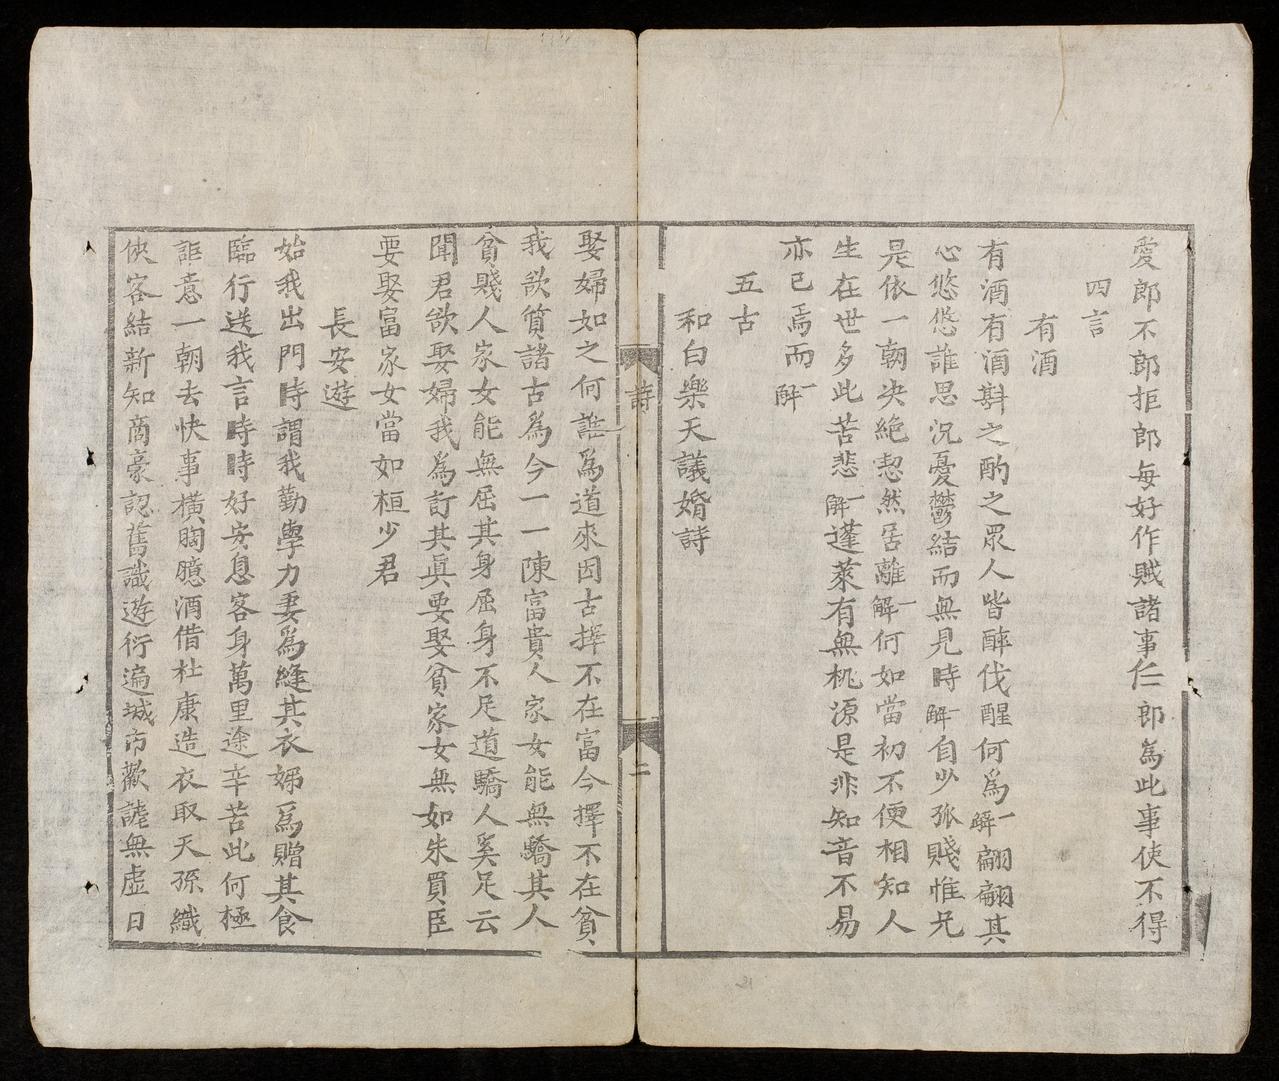 愛郎不郎拒郎每好作賊諸事仁郎爲此事使不得
四言
有酒
有酒有酒斟之酌之眾人皆醉伐醒何爲一解翩翩其
心悠悠誰思況憂鬱結而無見時一解自少孤賤惟兄
是依一朝决絶恝然居離一解何如當初不便相知人
生在世多此苦悲一解蓬萊有無桃源是非知音不易
亦已焉而一解
五古
和白樂天議婚詩
詩
二
娶婦如之何誰爲道來因古擇不在富今擇不在貧
我欲質諸古爲今一一陳富貴人家女能無驕其人
貧賤人家女能無屈其身屈身不足道驕人奚足云
聞君欲娶婦我爲訂其眞要娶貧家女無如朱買臣
要娶富家女當如桓少君
長安遊
始我出門時謂我勤學力妻爲縫其衣姊爲贈其食
臨行送我言時時好安息客身萬里途辛苦此何極
詎意一朝去快事橫胸臆酒借杜康造衣取天孫織
俠客結新知商豪認舊識遊行遍城市歡謔無虛日